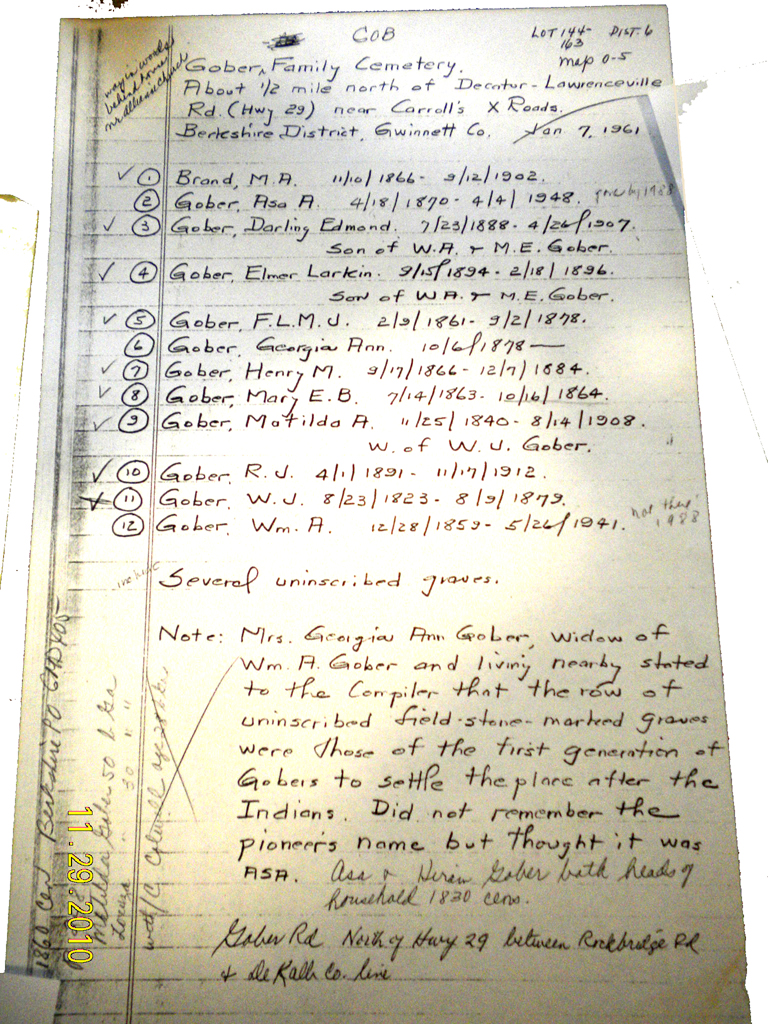 GOB
LOT 144- DIST. 6
163
map O-5
way in woods
behind home
Gober, Family Cemetery.
About 1/2 mile north of Decatur-Lawrenceville
Rd. (Hwy 29) near Carroll's X Roads.
Berkshire District, Gwinnett Co. Jan 7, 1961
✓ 1 Brand, M.A. 11/10/1866- 9/12/1902.
2 Gober, Asa A. 4/18/1870- 4/4/1948. gone by 1988
✓ 3 Gober, Darling Edmond. 7/23/1888- 4/26/1907.
Son of W.A. & M.E. Gober.
✓ 4 Gober, Elmer Larkin. 9/15/1894- 2/18/1896.
Son of W.A. & M.E. Gober.
✓ 5 Gober, F.L.M.J. 2/9/1861- 9/2/1878.
6 Gober, Georgia Ann. 10/6/1878—
✓ 7 Gober, Henry M. 9/17/1866- 12/7/1884.
✓ 8 Gober, Mary E.B. 7/14/1863- 10/16/1864.
✓ 9 Gober, Matilda A. 11/25/1840- 8/14/1908.
W. of W.J. Gober.
✓ 10 Gober, R.J. 4/1/1891- 11/17/1912.
✓ 11 Gober, W.J. 8/23/1823- 8/9/1879.
12 Gober, Wm. A. 12/28/1859- 5/26/1941. not there
1988
Several uninscribed graves.
Note: Mrs. Georgia Ann Gober, widow of
Wm. A. Gober and living nearby stated
to the Compiler that the row of
uninscribed field-stone-marked graves
were those of the first generation of
Gobers to settle the place after the
Indians. Did not remember the
pioneer's name but thought it was
ASA. Asa & Hiram Gober both heads of
household 1830 cens.
Gober Rd North of Hwy 29 between Rockbridge Rd
& DeKalb Co. line
1860 Cen Berkshire PO
Matilda Gober 50 b Ga
Louiza " 30 " "
11.29.2010